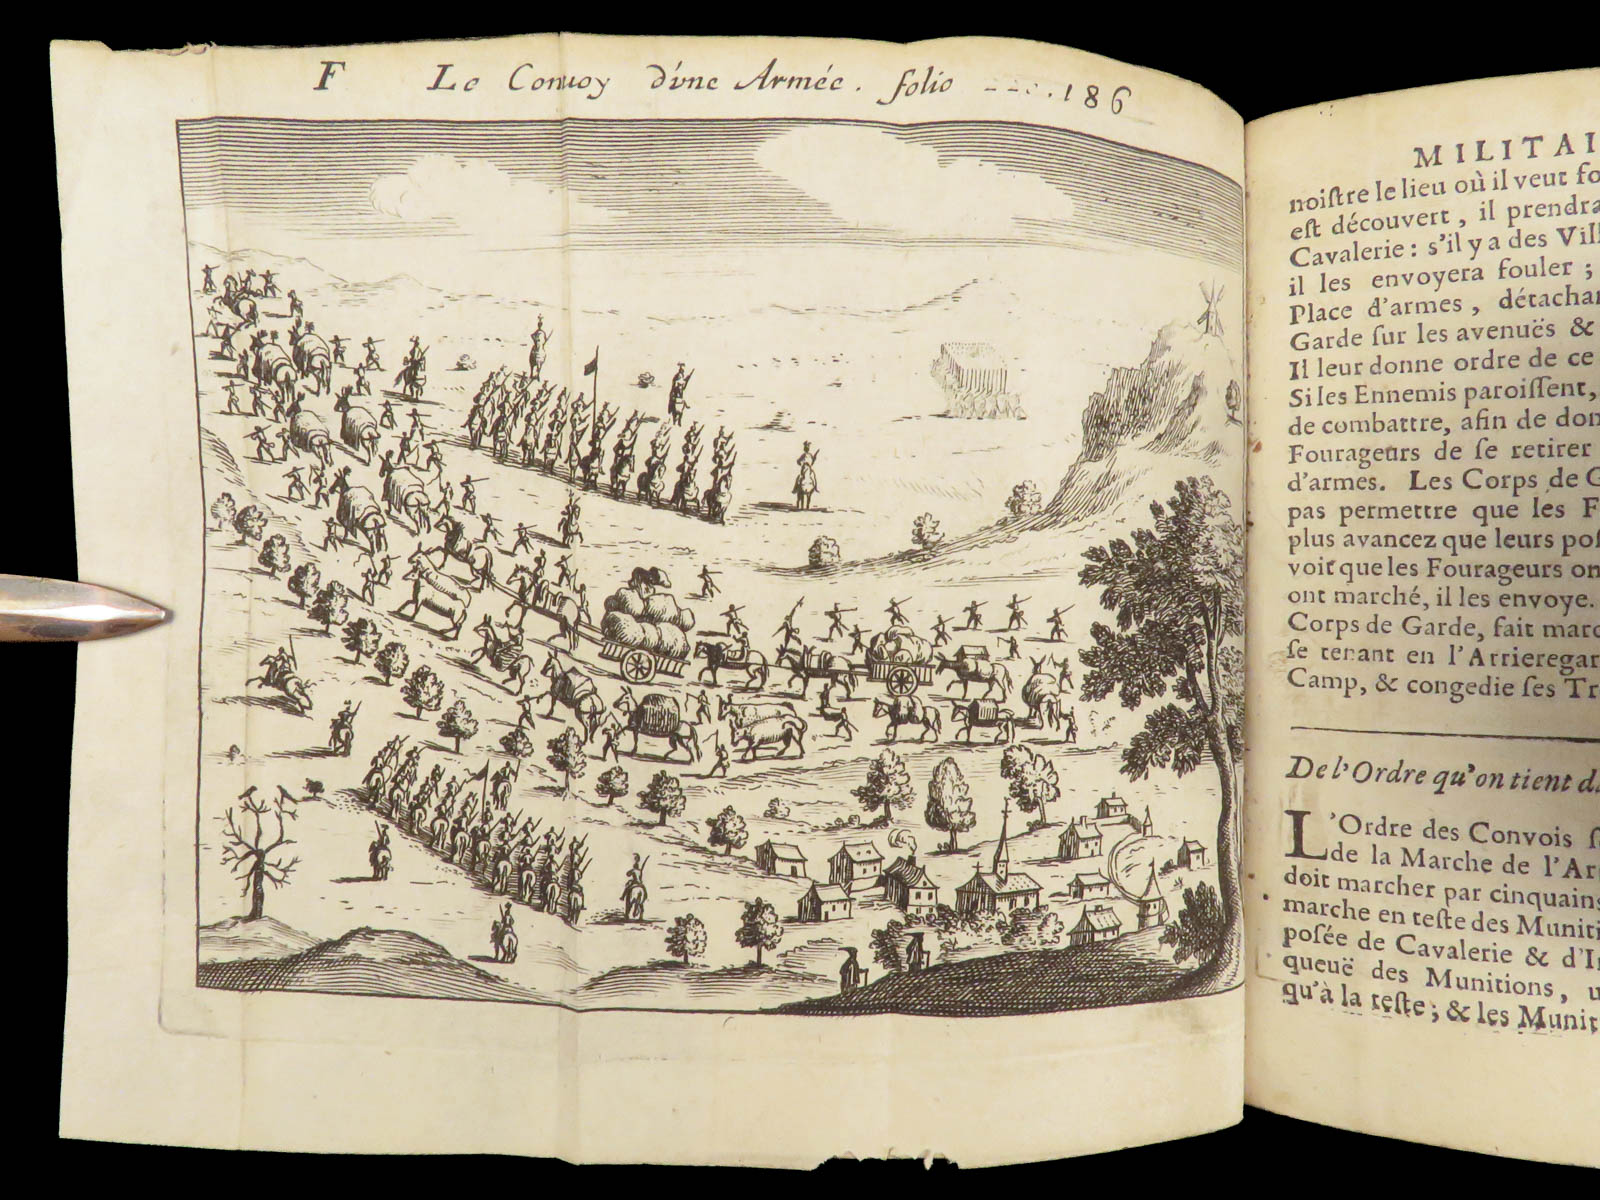 F Le Convoy d'vne Armée. folio 186
MILITAI
noiſtre le lieu où il veut fo
eſt découvert, il prendra
Cavalerie: s'il y a des Vill
il les envoyera fouler;
Place d'armes, détachan
Garde ſur les avenuës &
Il leur donne ordre de ce
Si les Ennemis paroiſſent,
de combattre, afin de don
Fourageurs de ſe retirer
d'armes. Les Corps de G
pas permettre que les F
plus avancez que leurs poſ
voit que les Fourageurs on
ont marché, il les envoye.
Corps de Garde, fait marc
ſe tenant en l'Arrieregar
Camp, & congedie ſes Tr
De l'Ordre qu'on tient d
L'Ordre des Convois ſ
de la Marche de l'Ar
doit marcher par cinquain
marche en teſte des Muniti
poſée de Cavalerie & d'I
queuë des Munitions, u
qu'à la teſte; & les Munit